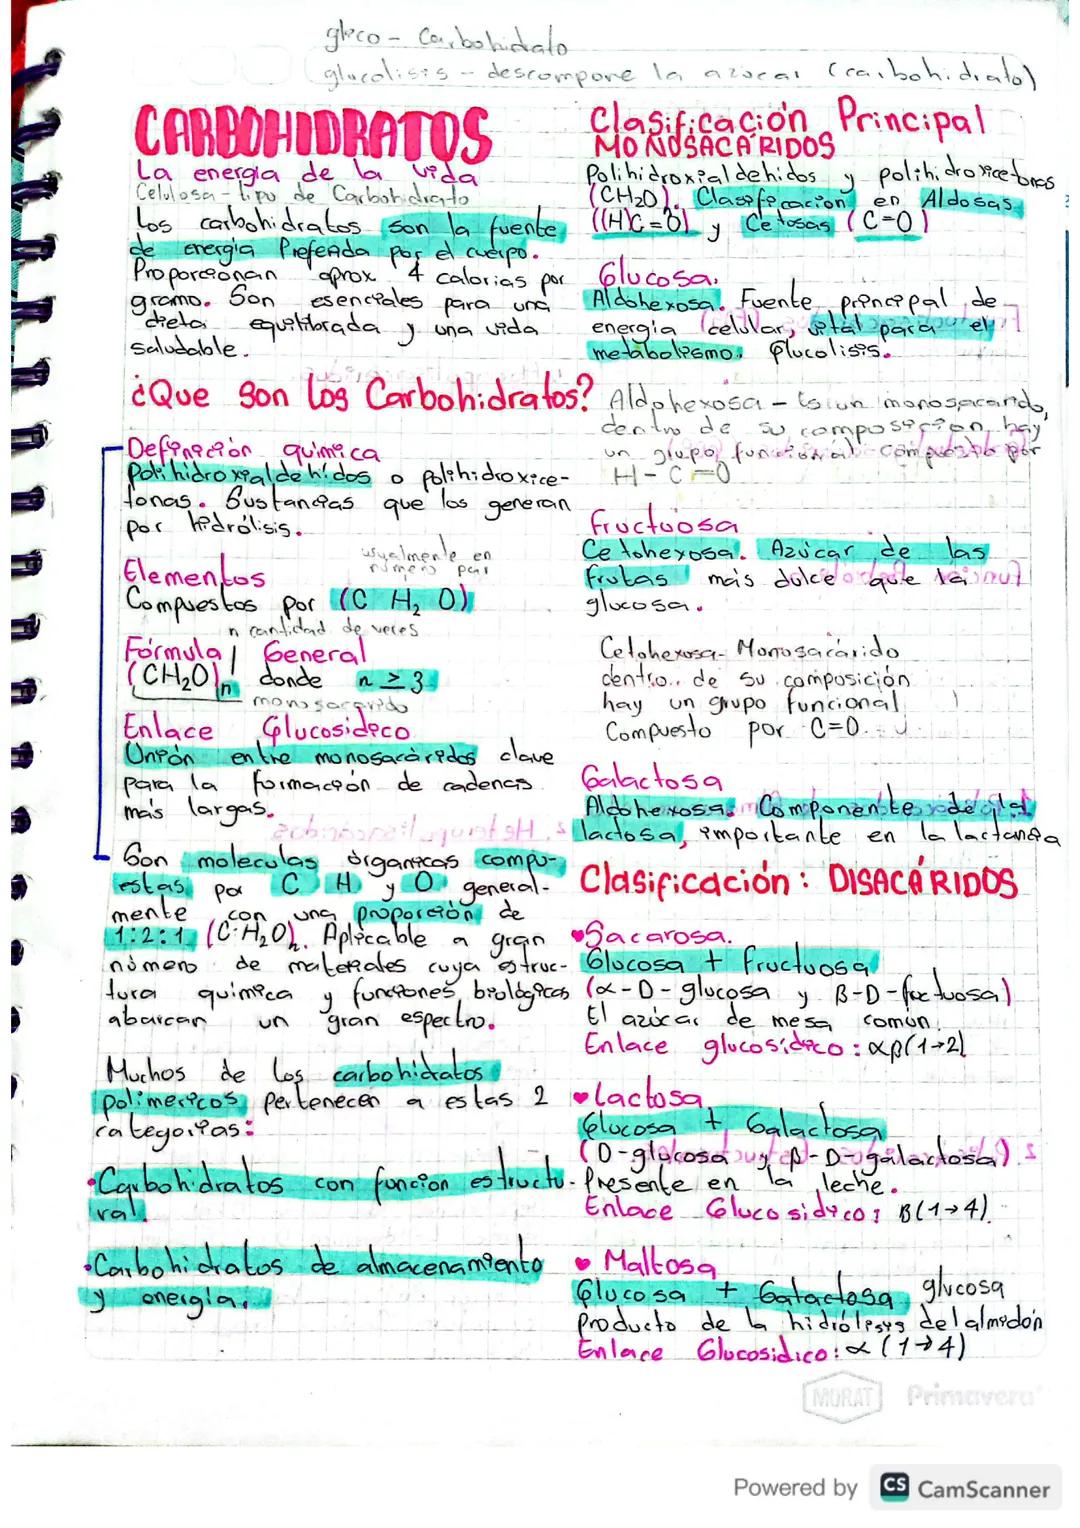 gluco - Carbohidrato
glucolisis - descompone la azucar (carbohidrato)
CARBOHIDRATOS
La energia de la vida
Celulosa - tipo de Carbohidrato
Los carbohidratos son la fuente
de energia Preferida por el cuerpo.
Proporcionan aprox 4 calorias por
gramo. Son esenciales para una
dieta equilibrada y una vida
saludable.
¿Que son los Carbohidratos?
Definición química
Polihidroxialdehídos o polihidroxice-
tonas. Sustancias que los generan
por hidrólisis.
usualmente en
numero par
Elementos
Compuestos por (C H₂ O)
n cantidad de veces
Fórmula General
(CH₂O)n donde n ≥ 3
monosacarido
Enlace Glucosidico
Unión entre monosacáridos clave
para la formación de cadenas
más largas.
Son moleculas órganicas compu-
estas por C H y O general-
mente con una proporción de
1:2:1 (C·H₂O)n. Aplicable a gran
número de materiales cuya estruc-
tura química y funciones biológicas
abarcan un gran espectro.
Muchos de los carbohidratos
polimericos pertenecen a estas 2
categorias:
•Carbohidratos con funcion estructu-
ral.
•Carbohidratos de almacenamiento
y energia.
Clasificación Principal
MONOSACÁRIDOS
Polihidroxialdehidos y polihidroxicetonas
(CH₂O). Clasificacion en Aldosas
((H)C=O) y Cetosas (C=O)
Glucosa.
Aldohexosa. Fuente principal de
energia celular, vital para el
metabolismo. glucolisis.
Aldohexosa - Es un monosacarido,
dentro de su composicion hay
un grupo funcional compuesto por
H-C=O
fructuosa
Cetohexosa. Azúcar de las
frutas más dulce que la
glucosa.
Cetohexosa- Monosacárido
dentro de su composición
hay un grupo funcional
Compuesto por C=O.
Galactosa
Aldohexosa. Componente de la
lactosa, importante en la lactancia
Clasificación: DISACÁRIDOS
♥Sacarosa.
Glucosa + fructuosa
(α-D-glucosa y β-D-fructuosa)
El azúcar de mesa común.
Enlace glucosídico: αβ(1→2)
♥Lactosa
Glucosa + Galactosa
(D-glucosa y β-D-galactosa).
Presente en la leche.
Enlace Glucosidico: β(1→4).
♥ Maltosa
Glucosa + Galactosa glucosa
Producto de la hidrólisis del almidón
Enlace Glucosidico: α(1→4)
MORAT Primavera
Powered by CS CamScanner